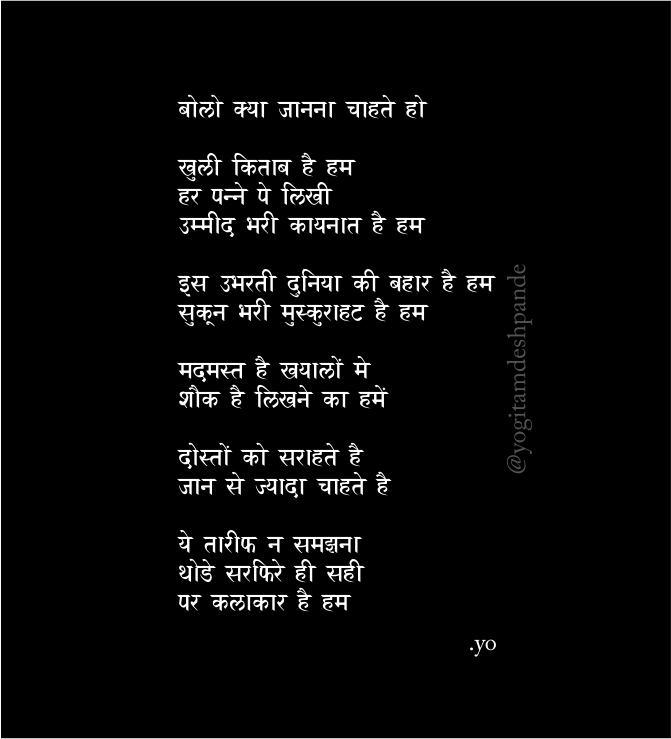 बोलो क्या जानना चाहते हो
खुली किताब है हम
हर पन्ने पे लिखी
उम्मीद भरी कायनात है हम
इस उभरती दुनिया की बहार है हम
सुकून भरी मुस्कुराहट है हम
मदमस्त है खयालों मे
शौक है लिखने का हमें
दोस्तों को सराहते है
जान से ज्यादा चाहते है
ये तारीफ न समझना
थोडे सरफिरे ही सही
पर कलाकार है हम
.yo
@yogitamdeshpande